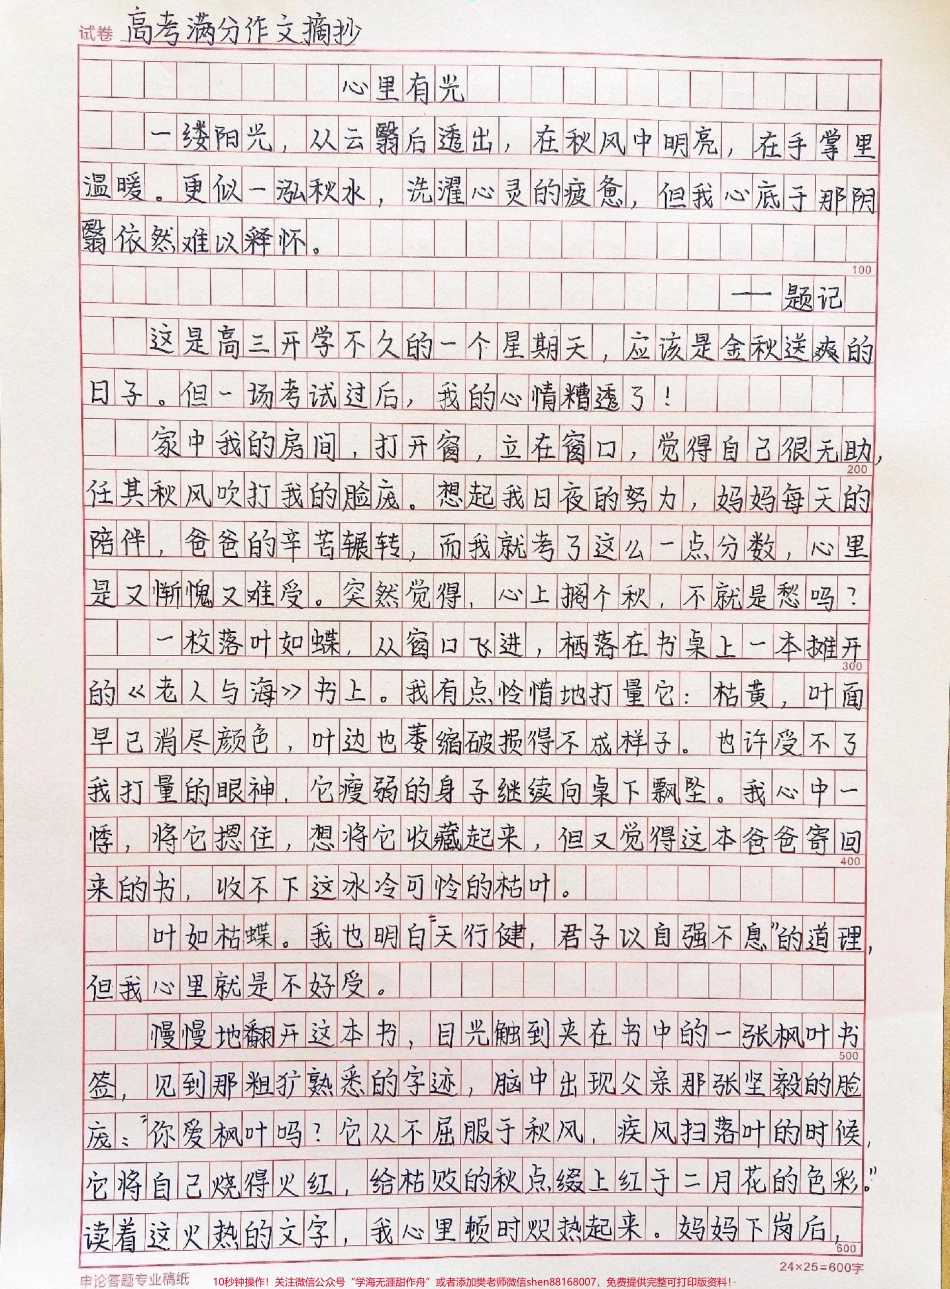 试卷 高考满分作文摘抄
心里有光
一缕阳光，从云翳后透出，在秋风中明亮，在手掌里
温暖。更似一泓秋水，洗濯心灵的疲惫，但我心底于那阴
翳依然难以释怀。
100
——题记
这是高三开学不久的一个星期天，应该是金秋送爽的
日子。但一场考试过后，我的心情糟透了！
家中我的房间，打开窗，立在窗口，觉得自己很无助，
200
任其秋风吹打我的脸庞。想起我日夜的努力，妈妈每天的
陪伴，爸爸的辛苦辗转，而我就考了这么一点分数，心里
是又惭愧又难受。突然觉得，心上搁个秋，不就是愁吗？
一枚落叶如蝶，从窗口飞进，栖落在书桌上一本摊开
300
的《老人与海》书上。我有点怜惜地打量它：枯黄，叶面
早已消尽颜色，叶边也萎缩破损得不成样子。也许受不了
我打量的眼神，它瘦弱的身子继续向桌下飘坠。我心中一
悸，将它摁住，想将它收藏起来，但又觉得这本爸爸寄回
400
来的书，收不下这冰冷可怜的枯叶。
叶如枯蝶。我也明白“天行健，君子以自强不息”的道理，
但我心里就是不好受。
慢慢地翻开这本书，目光触到夹在书中的一张枫叶书
500
签，见到那粗犷熟悉的字迹，脑中出现父亲那张坚毅的脸
庞：“你爱枫叶吗？它从不屈服于秋风，疾风扫落叶的时候，
它将自己烧得火红，给枯败的秋点缀上红于二月花的色彩。”
读着这火热的文字，我心里顿时炽热起来。妈妈下岗后，
600
申论答题专业稿纸
24×25=600字
10秒钟操作！关注微信公众号“学海无涯甜作舟”或者添加樊老师微信shen88168007，免费提供完整可打印版资料！